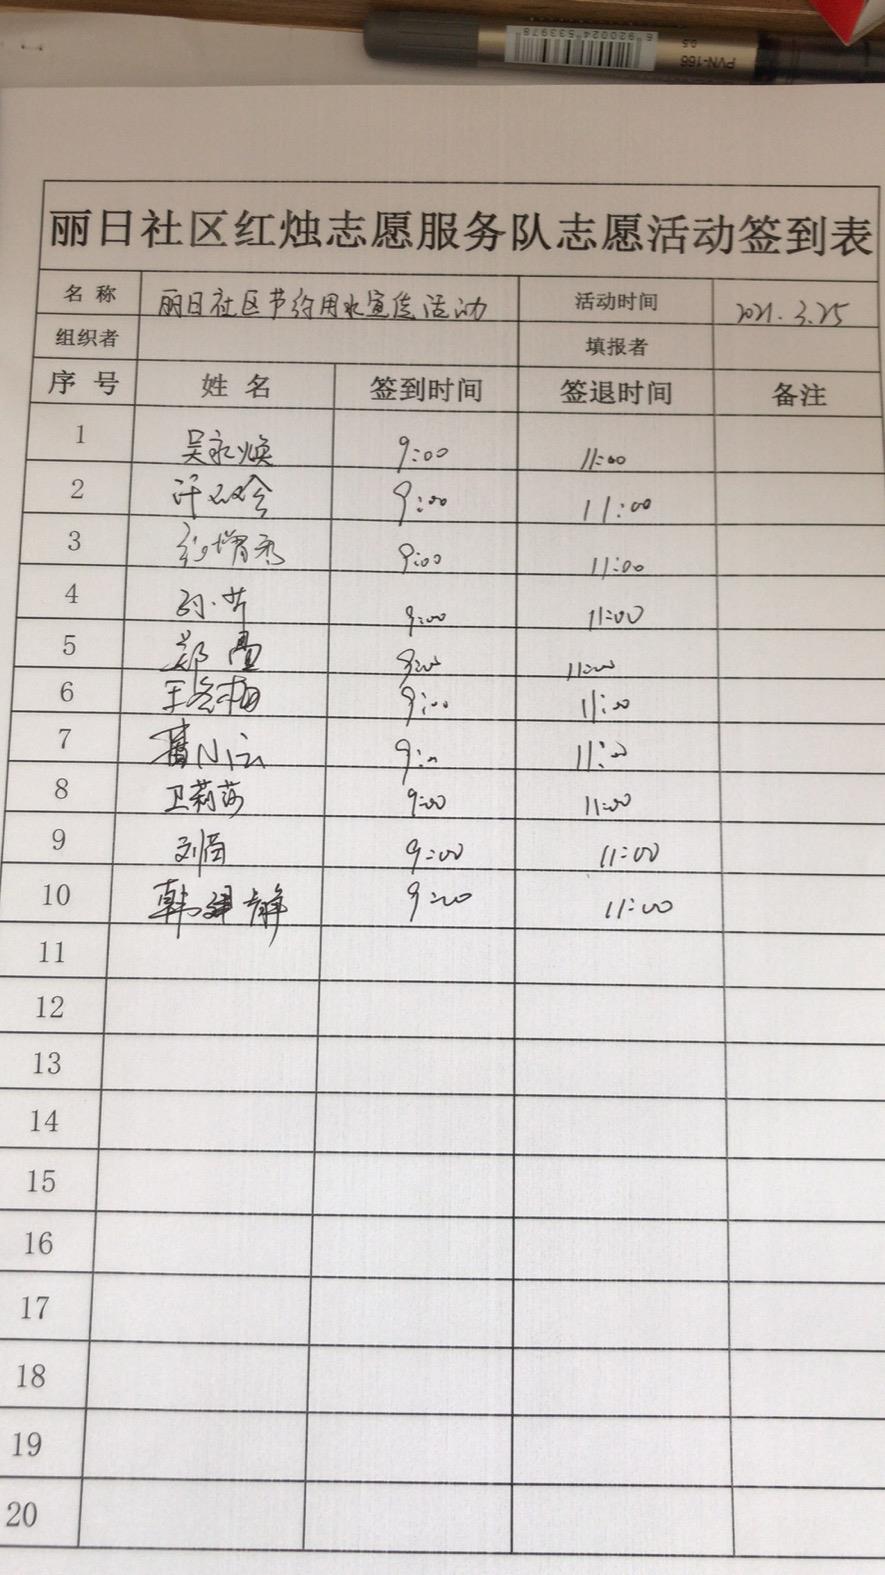 6920024533978
PVN-166
0.5
丽日社区红烛志愿服务队志愿活动签到表
名 称 丽日社区节约用水宣传活动 活动时间 2021.3.25
组织者 填报者
序 号 姓 名 签到时间 签退时间 备注
1 吴永焕 9:00 11:00
2 9:00 11:00
3 9:00 11:00
4 9:00 11:00
5 郑 9:00 11:00
6 9:00 11:00
7 9:00 11:00
8 卫莉莎 9:00 11:00
9 刘 9:00 11:00
10 韩 静 9:00 11:00
11
12
13
14
15
16
17
18
19
20